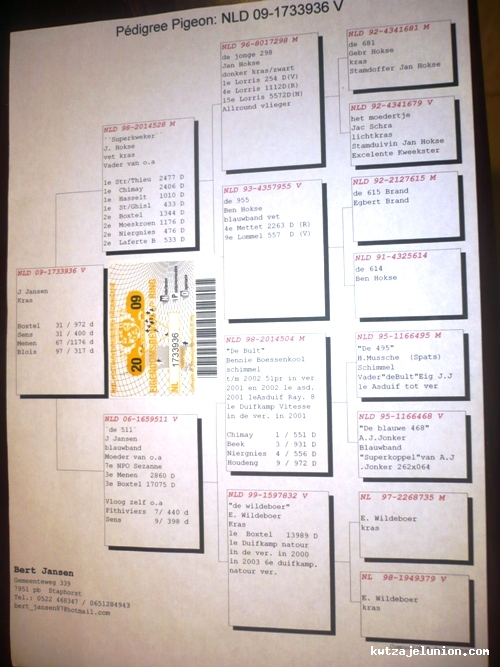 Pédigree Pigeon: NLD 09-1733936 V
NLD 09-1733936 V
J Jansen
Kras
Boxtel 31 / 972 d
Sens 31 / 400 d
Menen 67 /1176 d
Blois 97 / 317 d
NLD 98-2014528 M
``Superkweker``
J. Hokse
vet kras
Vader van o.a
1e Str/Thieu 2477 D
1e Chimay 2406 D
1e Hasselt 1010 D
1e St/Ghisl 433 D
2e Boxtel 1344 D
2e Moeskroen 1176 D
2e Niergnies 476 D
2e Laferte B 533 D
NLD 06-1659511 V
`de 511`
J Jansen
blauwband
Moeder van o.a
7e NPO Sezanne
3e Menen 2860 D
3e Boxtel 17075 D
Vloog zelf o.a
Pithiviers 7/ 440 d
Sens 9/ 398 d
NLD 96-8017298 M
de jonge 298
Jan Hokse
donker kras/zwart
1e Lorris 254 D(V)
4e Lorris 1112D(R)
15e Lorris 5572D(N)
Allround vlieger
NLD 93-4357955 V
de 955
Ben Hokse
blauwband vet
4e Mettet 2263 D (R)
9e Lommel 557 D (V)
NLD 98-2014504 M
"De Bult"
Bennie Boessenkool
schimmel
t/m 2002 51pr in ver
2001 en 2002 1e asd.
2001 1eAsduif Ray. 8
1e Duifkamp Vitesse
in de ver. in 2001
Chimay 1 / 551 D
Beek 3 / 931 D
Niergnies 4 / 556 D
Houdeng 9 / 972 D
NLD 99-1597832 V
"de wildeboer"
E. Wildeboer
Kras
1e Boxtel 13989 D
1e Duifkamp natour
in de ver. in 2000
in 2003 6e duifkamp.
natour ver.
NLD 92-4341681 M
de 681
Gebr Hokse
kras
Stamdoffer Jan Hokse
NLD 92-4341679 V
het moedertje
Jac Schra
lichtkras
Stamduivin Jan Hokse
Excelente Kweekster
NLD 92-2127615 M
de 615 Brand
Egbert Brand
NLD 91-4325614
de 614
Ben Hokse
NLD 95-1166495 M
"De 495"
H.Mussche (Spats)
Schimmel
Vader"deBult"Eig J.J
1e Asduif tot ver
NLD 95-1166468 V
"De blauwe 468"
A.J.Jonker
Blauwband
"Superkoppel"van A.J
.Jonker 262x064
NL 97-2268735 M
E. Wildeboer
Kras
NL 98-1949379 V
E. Wildeboer
kras
20 09
NL 1733936
Bert Jansen
Gemeenteweg 339
7951 pb Staphorst
Tel.: 0522 468347 / 0651284943
bert_jansen87@hotmail.com
kutzajelunion.com